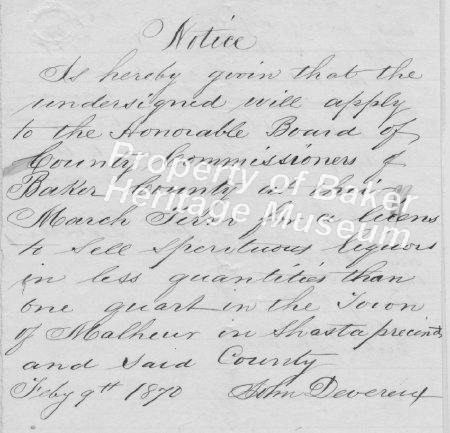 Notice
Is hereby givin that the
undersigned will apply
to the Honorable Board of
County Commissioners of
Baker County at their
March Term for a licens
to sell sperituous liquors
in less quantities than
one quart in the Town
of Malheur in Shasta precinct
and said County
Feby 9th 1870 John Devereux
Property of Baker
Heritage Museum